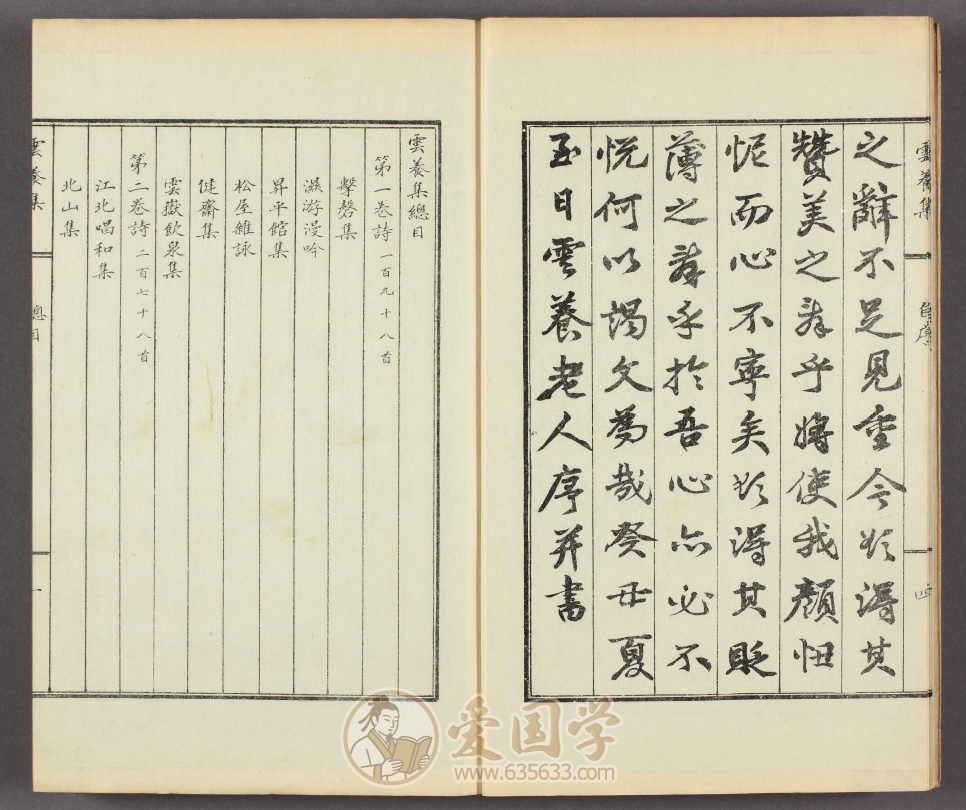 雲養集
自序
四
之辭不足見重今欲得其
贊美之辭乎將使我顏忸
怩而心不寧矣欲得其貶
薄之辭乎於吾心亦必不
悅何以謁文爲哉癸丑夏
至日雲養老人序幷書
雲養集總目
第一卷詩 一百九十八首
擊磬集
滋游漫吟
昇平館集
松屋雜詠
健齋集
雲嶽飮泉集
第二卷詩 二百七十八首
江北唱和集
北山集
雲養集
總目
一
爱国学
www.635633.com